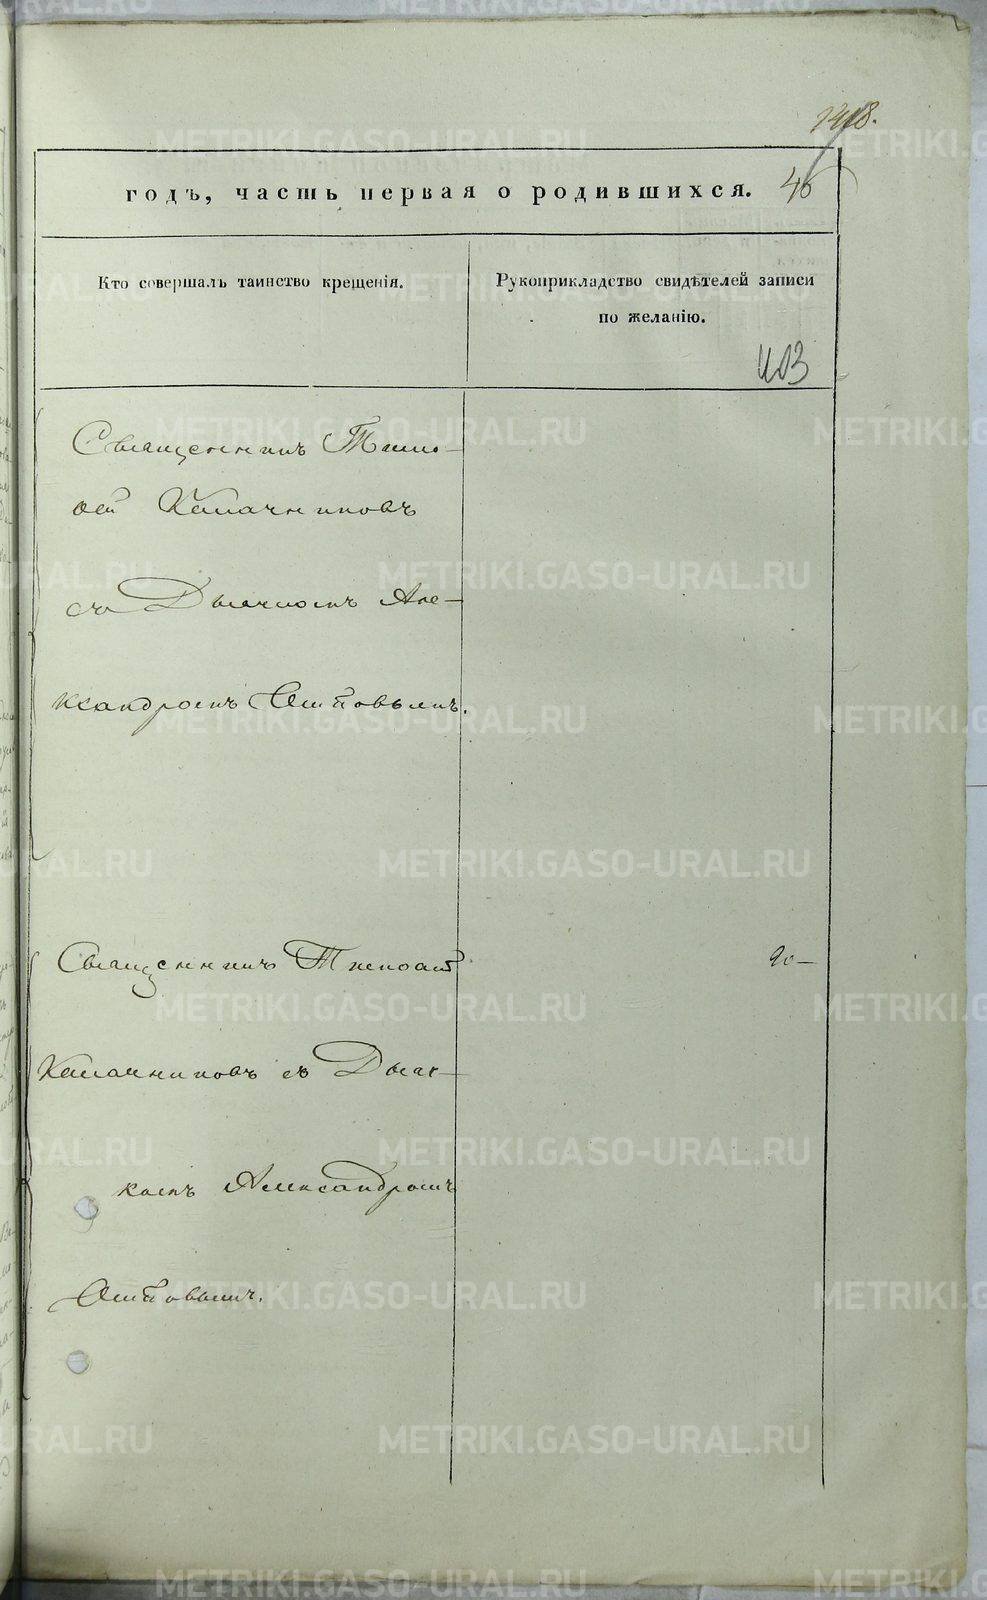 годъ, часть первая о родившихся.
Кто совершалъ таинство крещенія.
Рукоприкладство свидѣтелей записи
по желанію.
Священникъ Тимо-
ѳей Калачниковъ
съ Дьячкомъ Але-
ксандромъ
Священникъ Тимоѳей
Калачниковъ съ Дьяч-
комъ Александромъ
METRIKI.GASO-URAL.RU